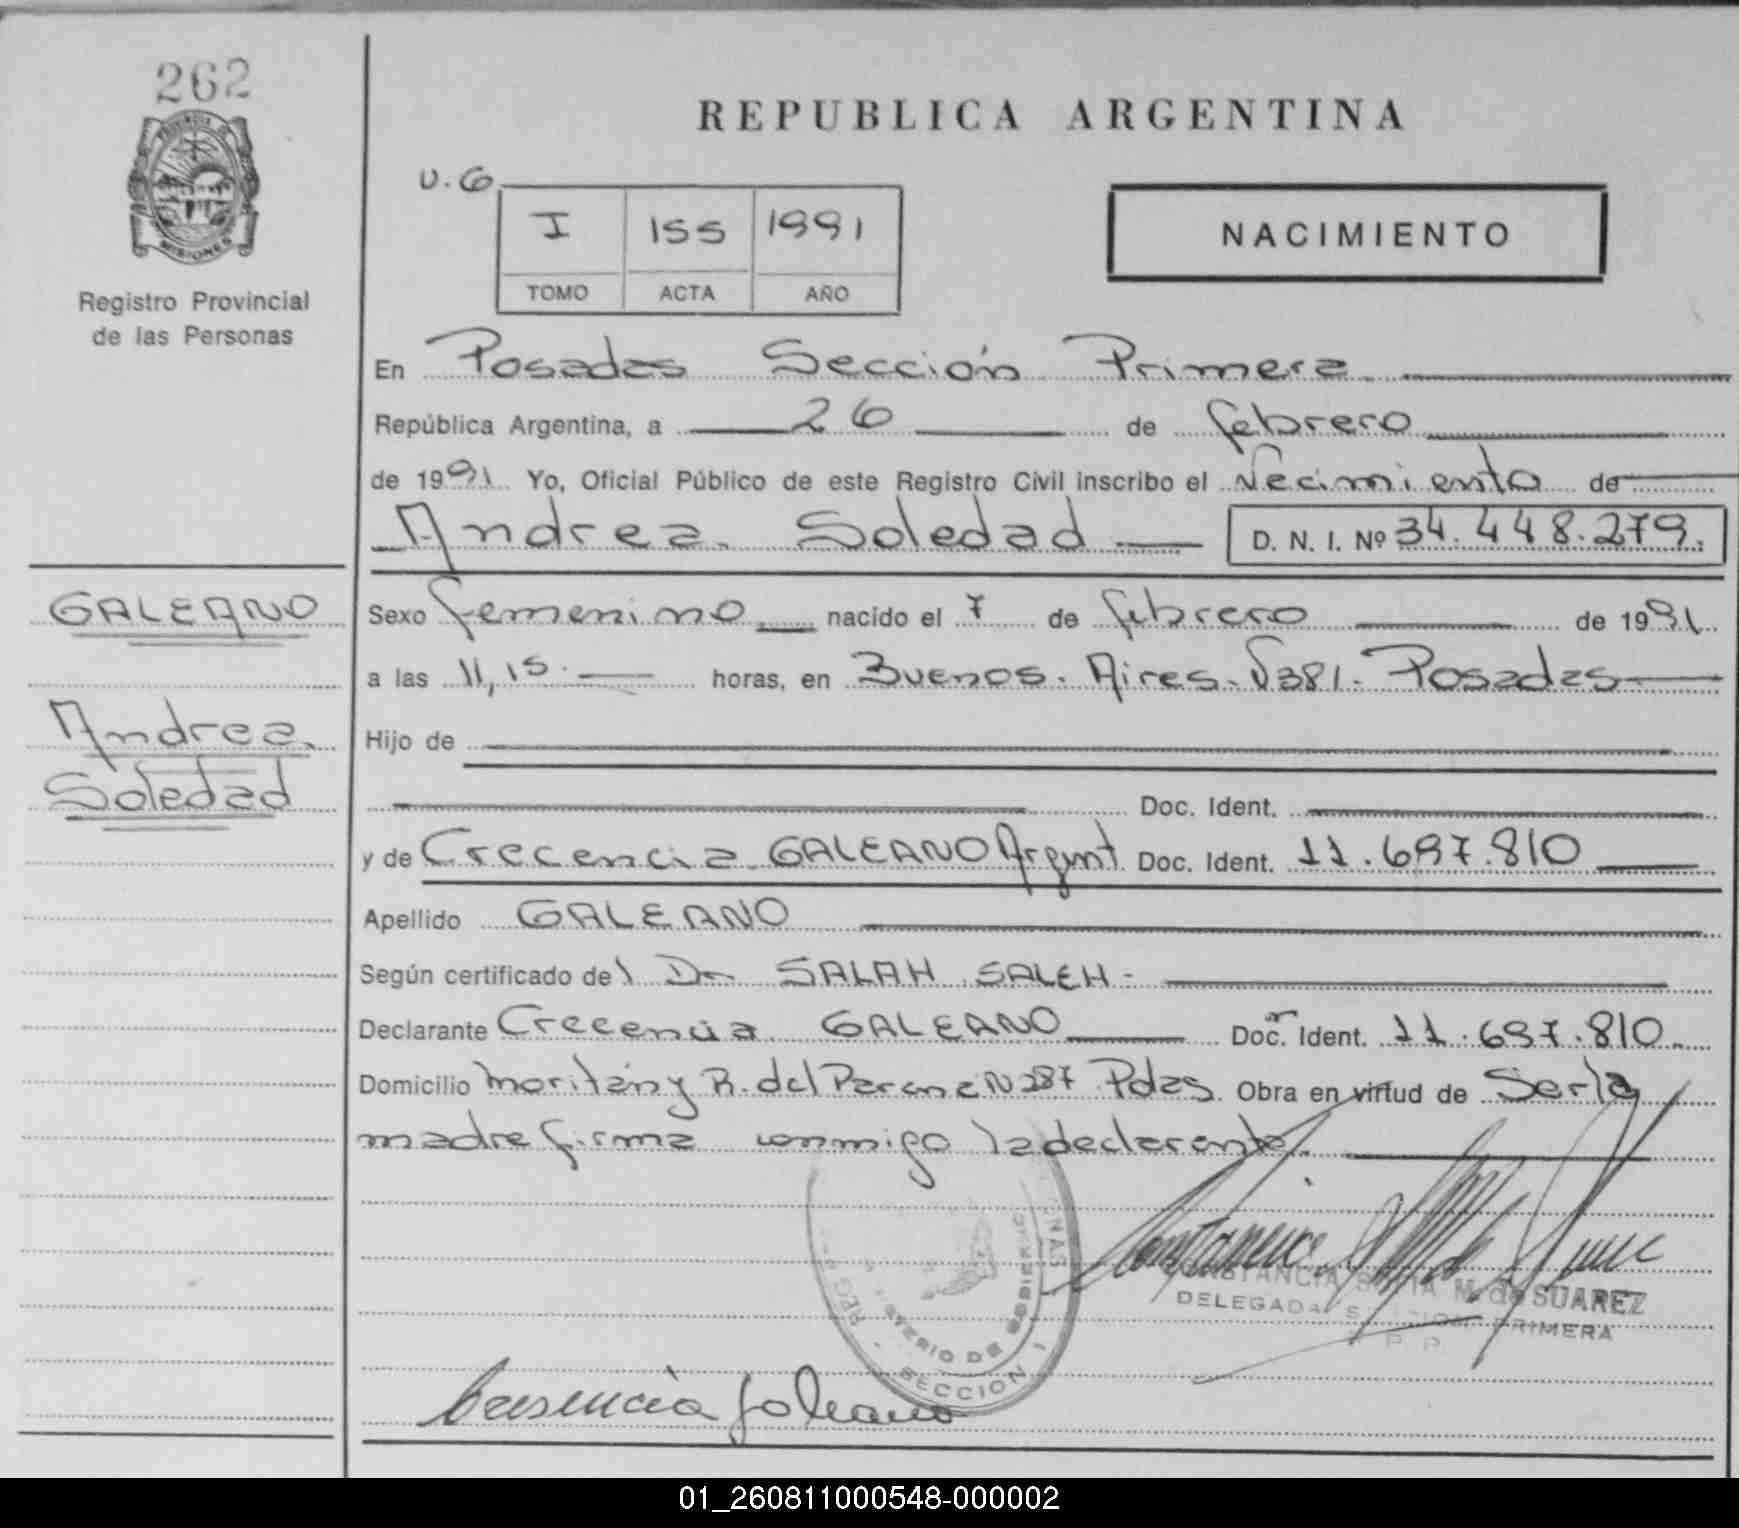 262
PROVINCIA DE
MISIONES
Registro Provincial
de las Personas
REPUBLICA ARGENTINA
U.G
I 155 1991
TOMO ACTA AÑO
NACIMIENTO
En Posadas Sección Primera
República Argentina, a 26 de febrero
de 1991 Yo, Oficial Público de este Registro Civil inscribo el Nacimiento de
Andrea Soledad D. N. I. Nº 34.448.279.
GALEANO
Andrea
Soledad
Sexo femenino nacido el 7 de febrero de 1991
a las 11,15. horas, en Buenos. Aires. 381. Posadas
Hijo de
Doc. Ident.
y de Crecencia GALEANO Argent Doc. Ident. 11.697.810
Apellido GALEANO
Según certificado del Dr SALAH SALEH -
Declarante Crecencia GALEANO Doc. Ident. 11.697.810.
Domicilio Moritán y R. del Paraná N 287 Pdas Obra en virtud de Ser la
madre firma conmigo la declarante.
CONSTANCIA M. de SUAREZ
DELEGADA PRIMERA
SECCION 1
Cresencia Galeano
01_260811000548-000002